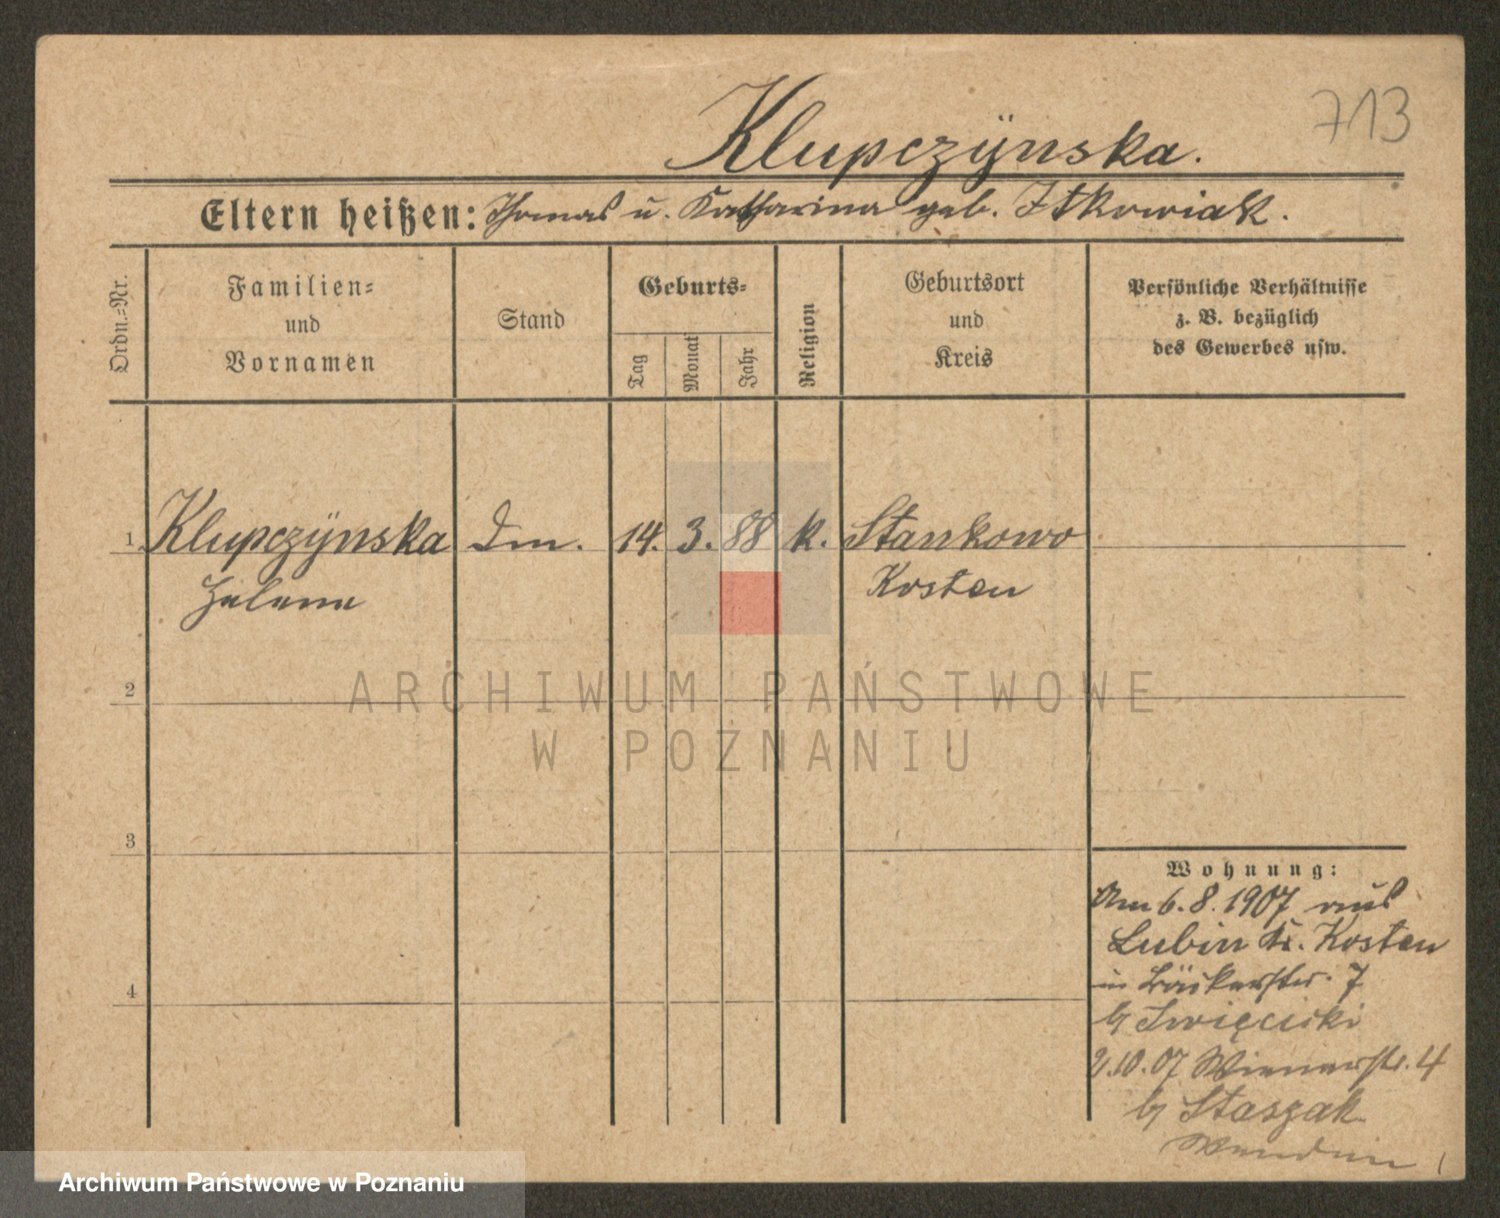 713
Klupczÿnska.
Eltern heißen: Thomas u. Katharina geb. Itkowiak.
Ordn.=Nr.
Familien=
und
Vornamen
Stand
Geburts=
Tag
Monat
Jahr
Religion
Geburtsort
und
Kreis
Persönliche Verhältnisse
z. B. bezüglich
des Gewerbes usw.
1 Klupczÿnska 14. 3. 88 k. Stankowo
Helene Kosten
2
3
4
Wohnung:
Am 6.8.1907 aus
Lubin Kr. Kosten
in Bäckerstr. 7
b/ Swięciski
2.10.07 Wienerstr. 4
b/ Staszak
ARCHIWUM PAŃSTWOWE
W POZNANIU
Archiwum Państwowe w Poznaniu